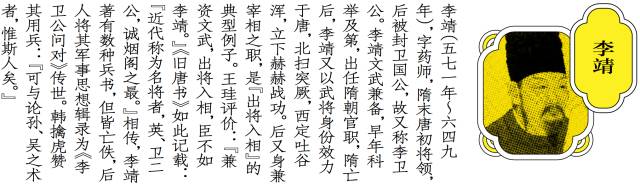 李靖
李靖（五七一年～六四九
年），字药师，隋末唐初将领，
后被封卫国公，故又称李卫
公。李靖文武兼备，早年科
举及第，出任隋朝官职，隋亡
后，李靖又以武将身份效力
于唐，北扫突厥，西定吐谷
浑，立下赫赫战功。后又身兼
宰相之职，是『出将入相』的
典型例子。王珪评价：『兼
资文武，出将入相，臣不如
李靖。』《旧唐书》如此记载：
『近代称为名将者，英、卫二
公，诚烟阁之最。』相传，李靖
著有数种兵书，但皆亡佚，后
人将其军事思想辑录为《李
卫公问对》传世。韩擒虎赞
其用兵：『可与论孙、吴之术
者，惟斯人矣。』